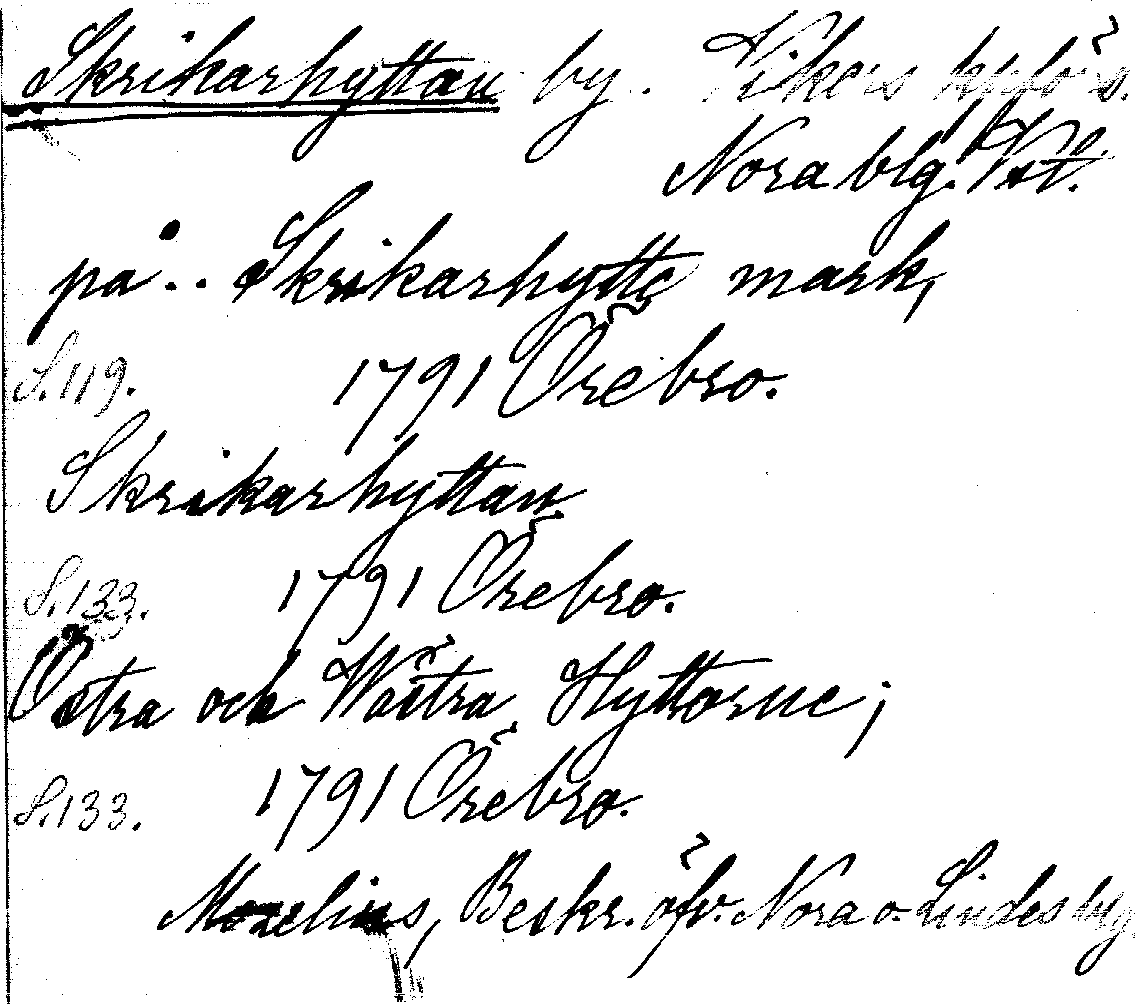 Skrikarhyttan by. Vikers kpfös.
Nora blg. Vstl.
på.. Skrikarhytte mark,
S. 119. 1791 Örebro.
Skrikarhyttan
S. 133. 1791 Örebro.
Östra och Wästra Hyttorne;
S. 133. 1791 Örebro.
Morelius, Beskr. öfv. Nora o. Lindes blg.